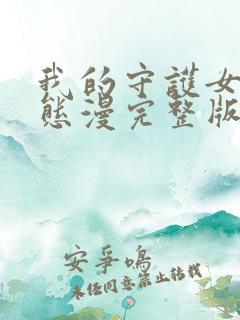 我的守護女
態漫完整版
安爭鳴
未經同意禁止轉載